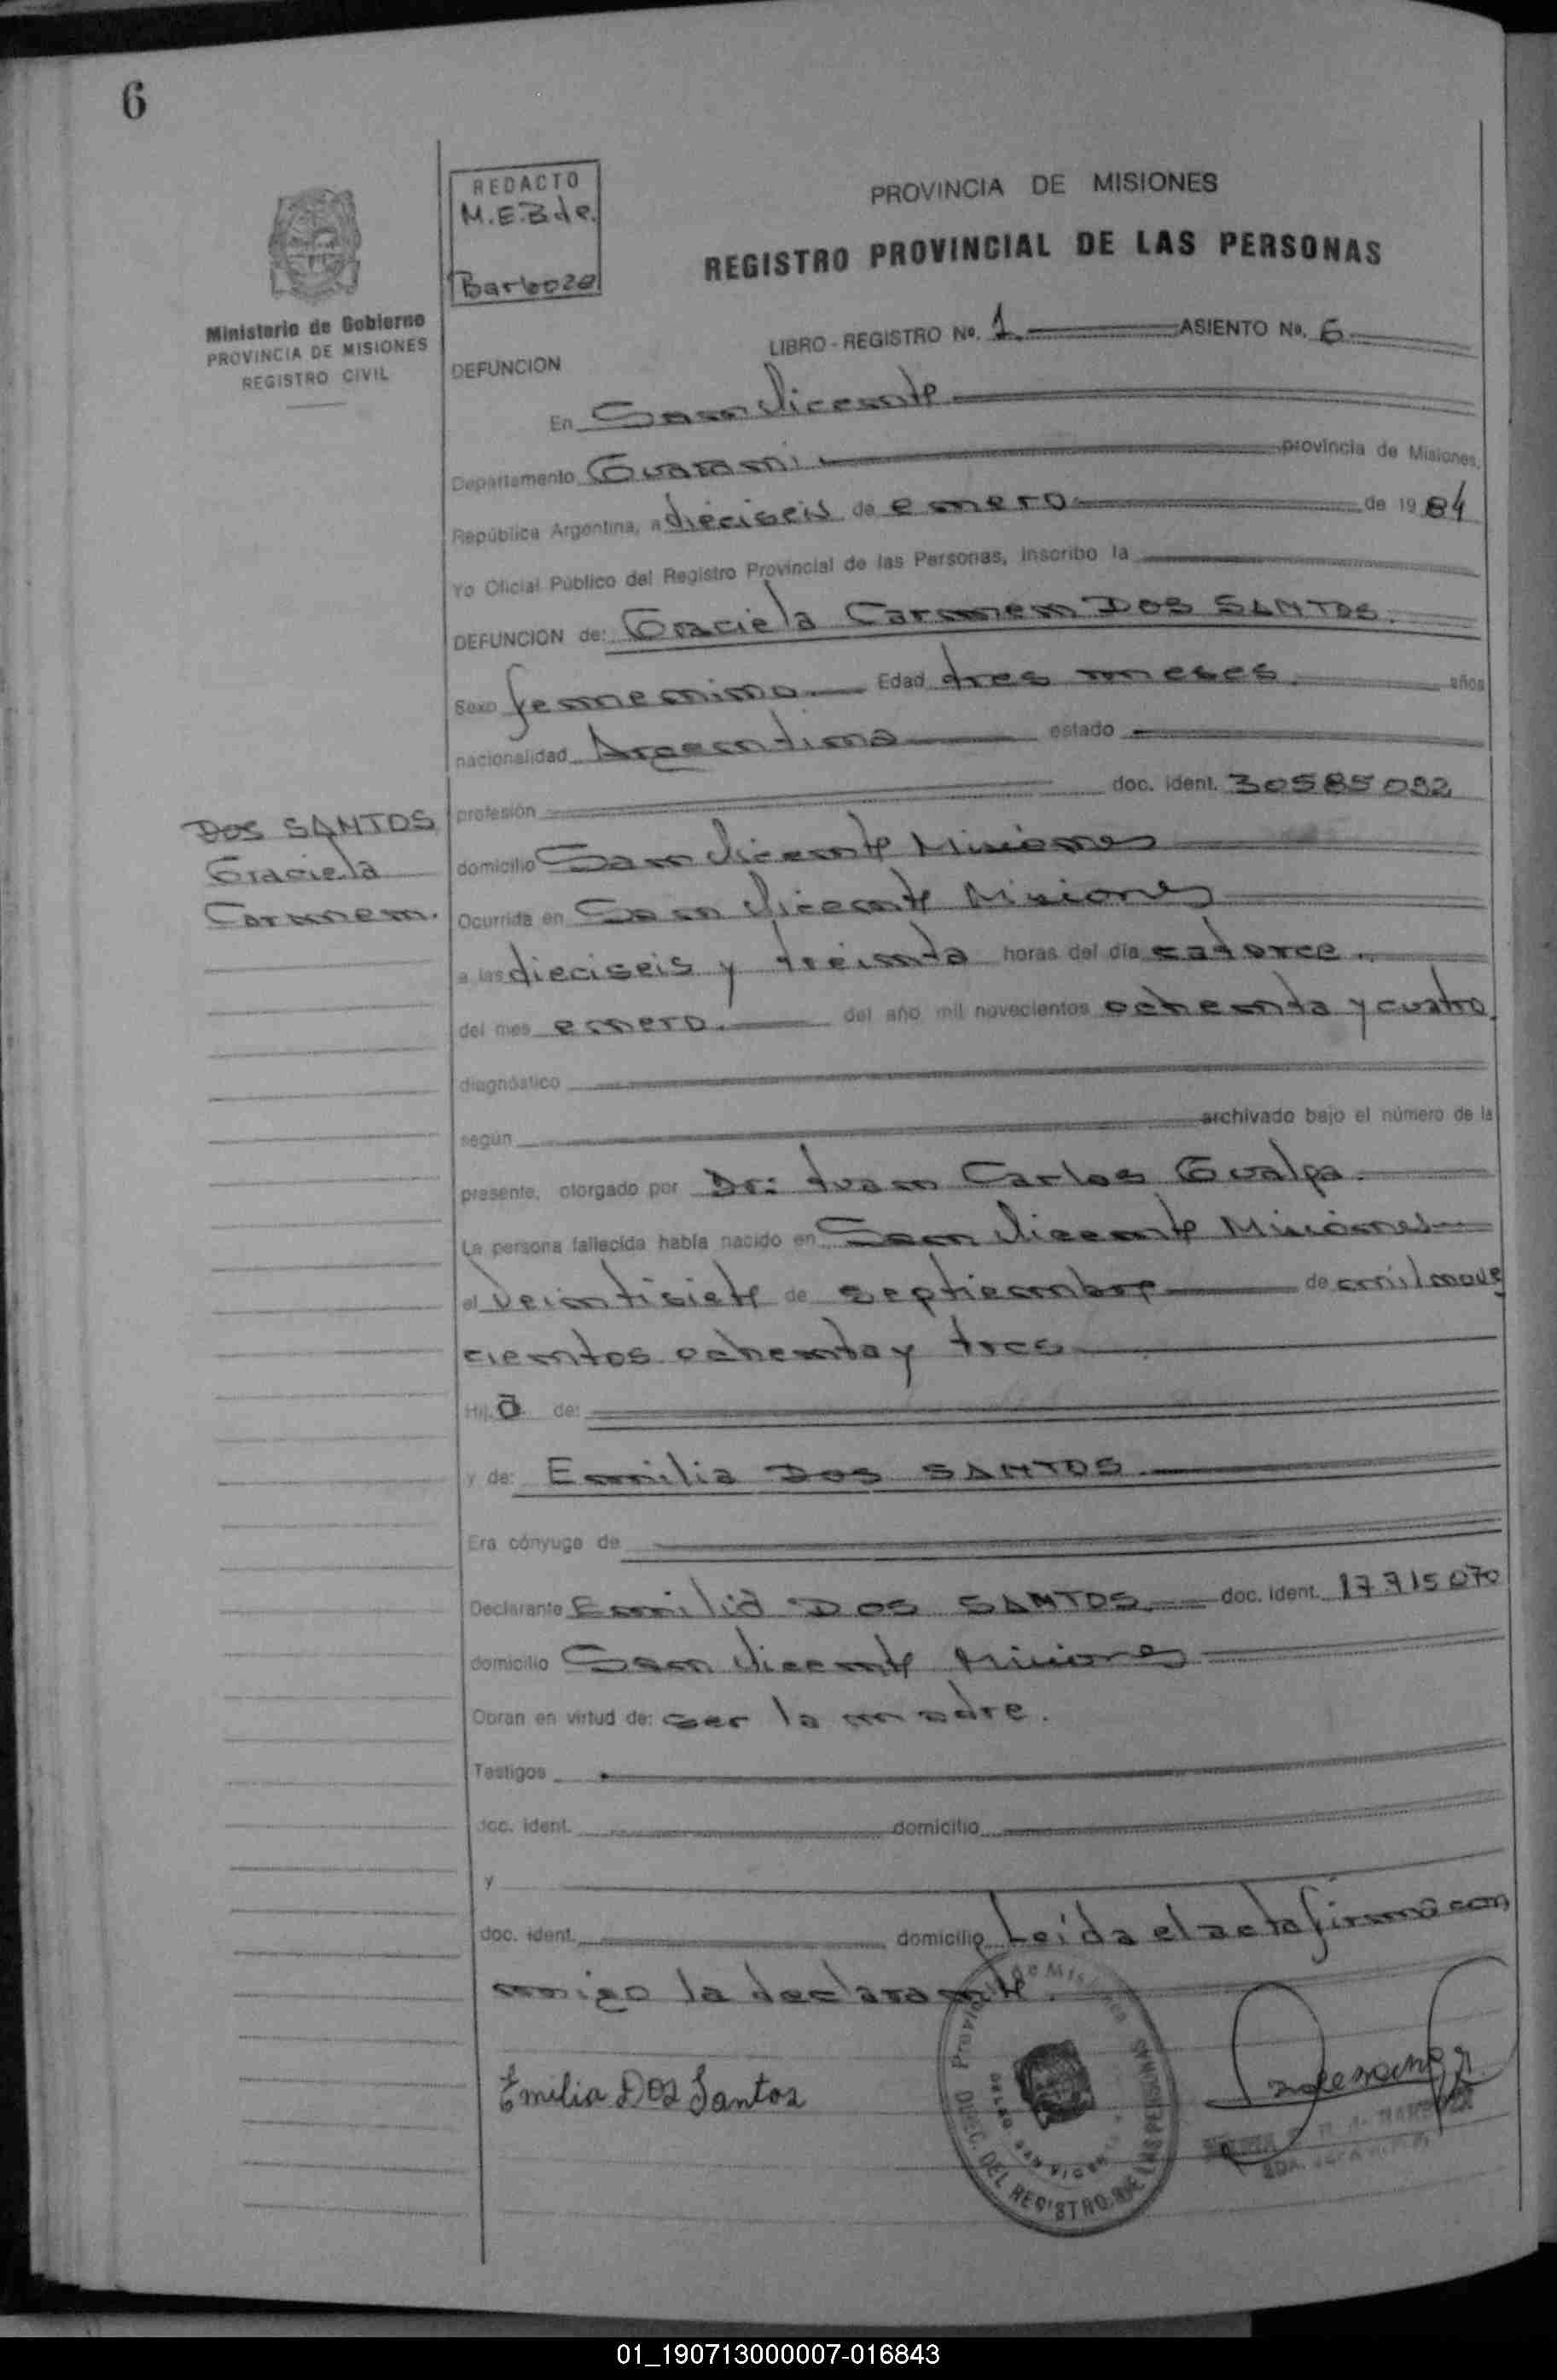 6
REDACTO
M.E.B de.
Barboza
PROVINCIA DE MISIONES
REGISTRO PROVINCIAL DE LAS PERSONAS
Ministerio de Gobierno
PROVINCIA DE MISIONES
REGISTRO CIVIL
LIBRO - REGISTRO No. 1 ASIENTO No. 6
DEFUNCION
En San Vicente
Departamento Guarani provincia de Misiones,
República Argentina, a dieciseis de enero de 1984
Yo Oficial Público del Registro Provincial de las Personas, inscribo la
DEFUNCION de: Graciela Carmen DOS SANTOS.
Sexo femenino Edad tres meses. años
nacionalidad Argentina estado
profesión doc. ident. 30585092
DOS SANTOS
Graciela
Carmen.
domicilio San Vicente Misiones
Ocurrida en San Vicente Misiones
a las dieciseis y treinta horas del día catorce.
del mes enero. del año mil novecientos ochenta y cuatro.
diagnóstico
según archivado bajo el número de la
presente, otorgado por Dr: Juan Carlos Gualpa.
La persona fallecida había nacido en San Vicente Misiones
el veintisiete de septiembre de mil nove
cientos ochenta y tres
Hija de:
y de: Emilia DOS SANTOS.
Era cónyuge de
Declarante Emilia DOS SANTOS. doc. ident. 17715070
domicilio San Vicente Misiones
Obran en virtud de: ser la madre.
Testigos
doc. ident. domicilio
y
doc. ident. domicilio Leida el acta firmó con
migo la declarante.
Emilia Dos Santos
Provincia de Misiones
DIREC. DEL REGISTRO P. DE LAS PERSONAS
SAN VICENTE
01_190713000007-016843